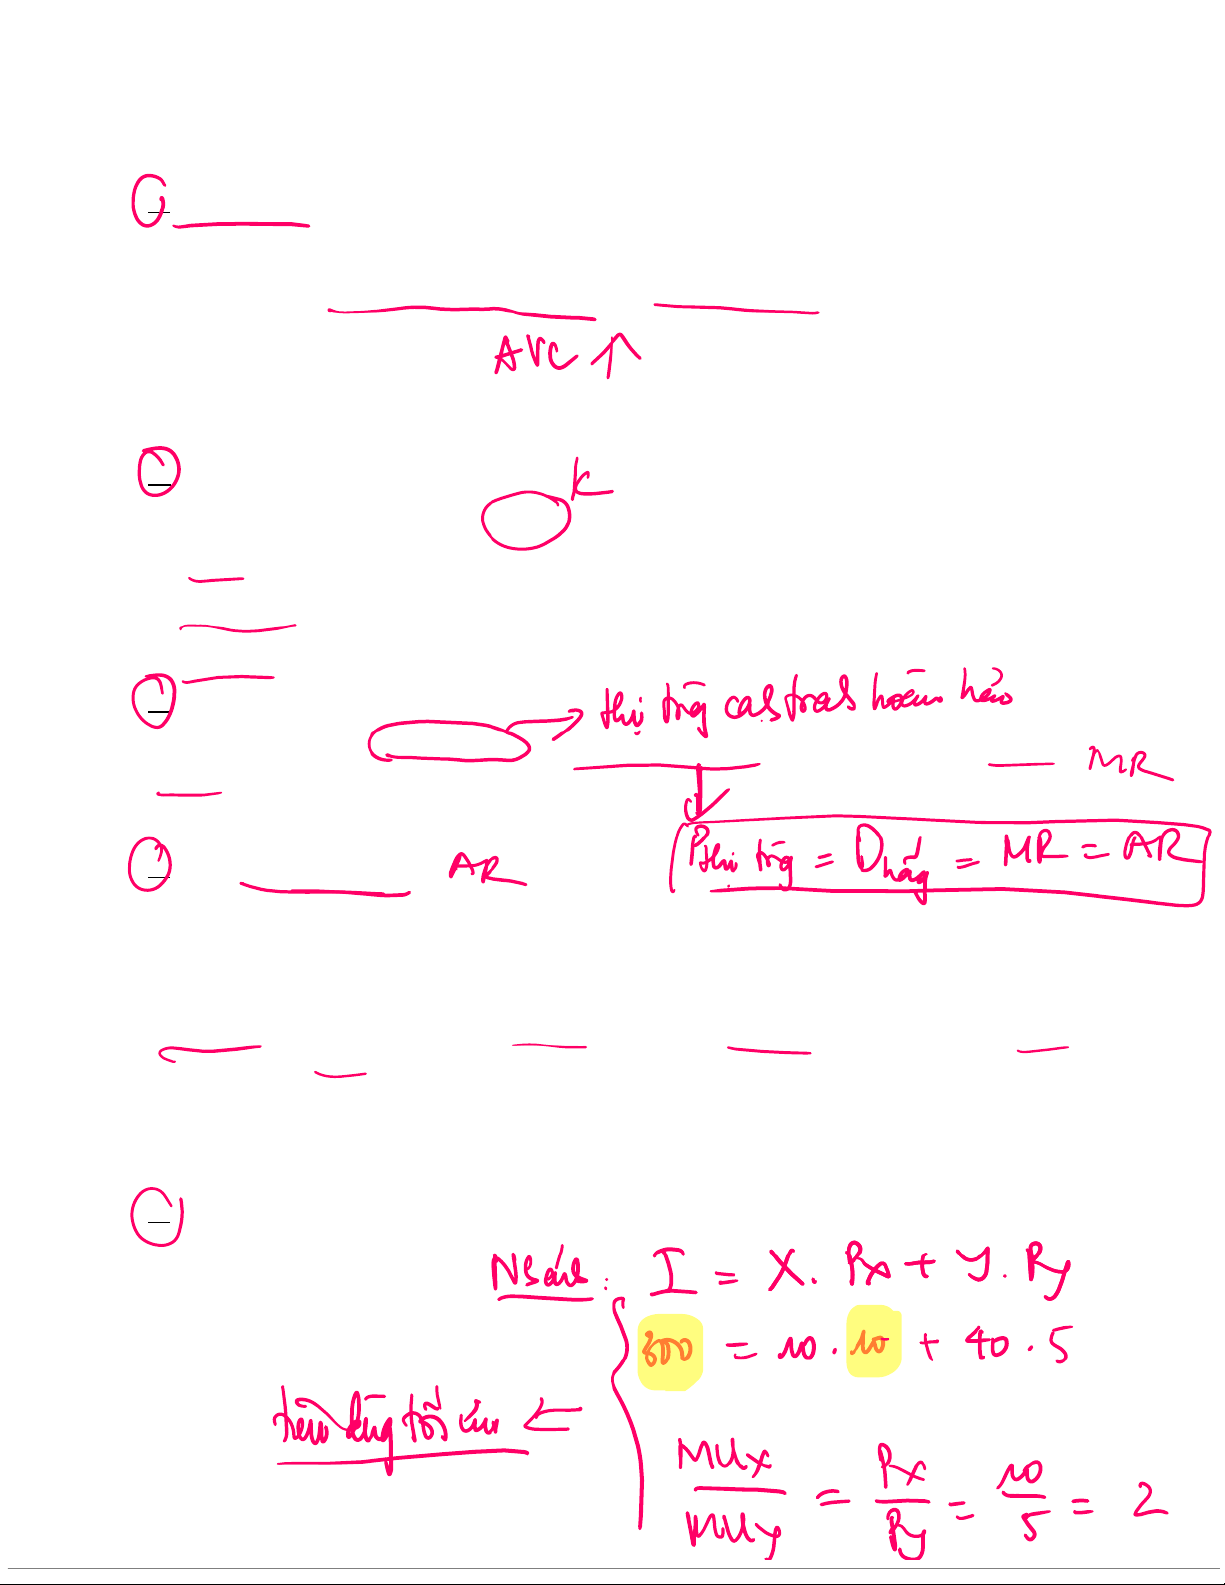 AVC ↑
K
thị trg cạnh tranh hoàn hảo
MR
AR
P thị trg = D hãng = MR = AR
N sách: I = X. Px + Y. Py
300 = 10. 10 + 40. 5
tiêu dùng tối ưu ⇐
MUx/MUy = Px/Py = 10/5 = 2